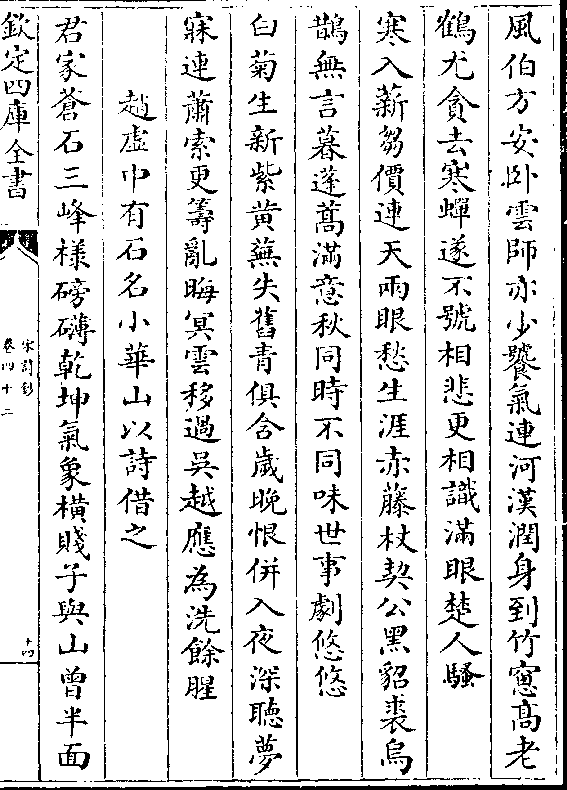 風伯方安卧雲師亦少饕氣連河漢潤身到竹窻髙老
鶴尤貪去寒蟬遂不號相悲更相識滿眼楚人騷
寒入薪芻價連天兩眼愁生涯赤藤杖契公黑貂裘烏
鵲無言暮蓬蒿滿意秋同時不同味世事劇悠悠
白菊生新紫黄蕪失舊青俱含歲晚恨併入夜深聽夢
寐連蕭索更籌亂晦冥雲移過吳越應為洗餘腥
趙虛中有石名小華山以詩借之
君家蒼石三峰様磅礴乾坤氣象横賤子與山曾半面
欽定四庫全書
宋詩鈔
卷四十二
十四